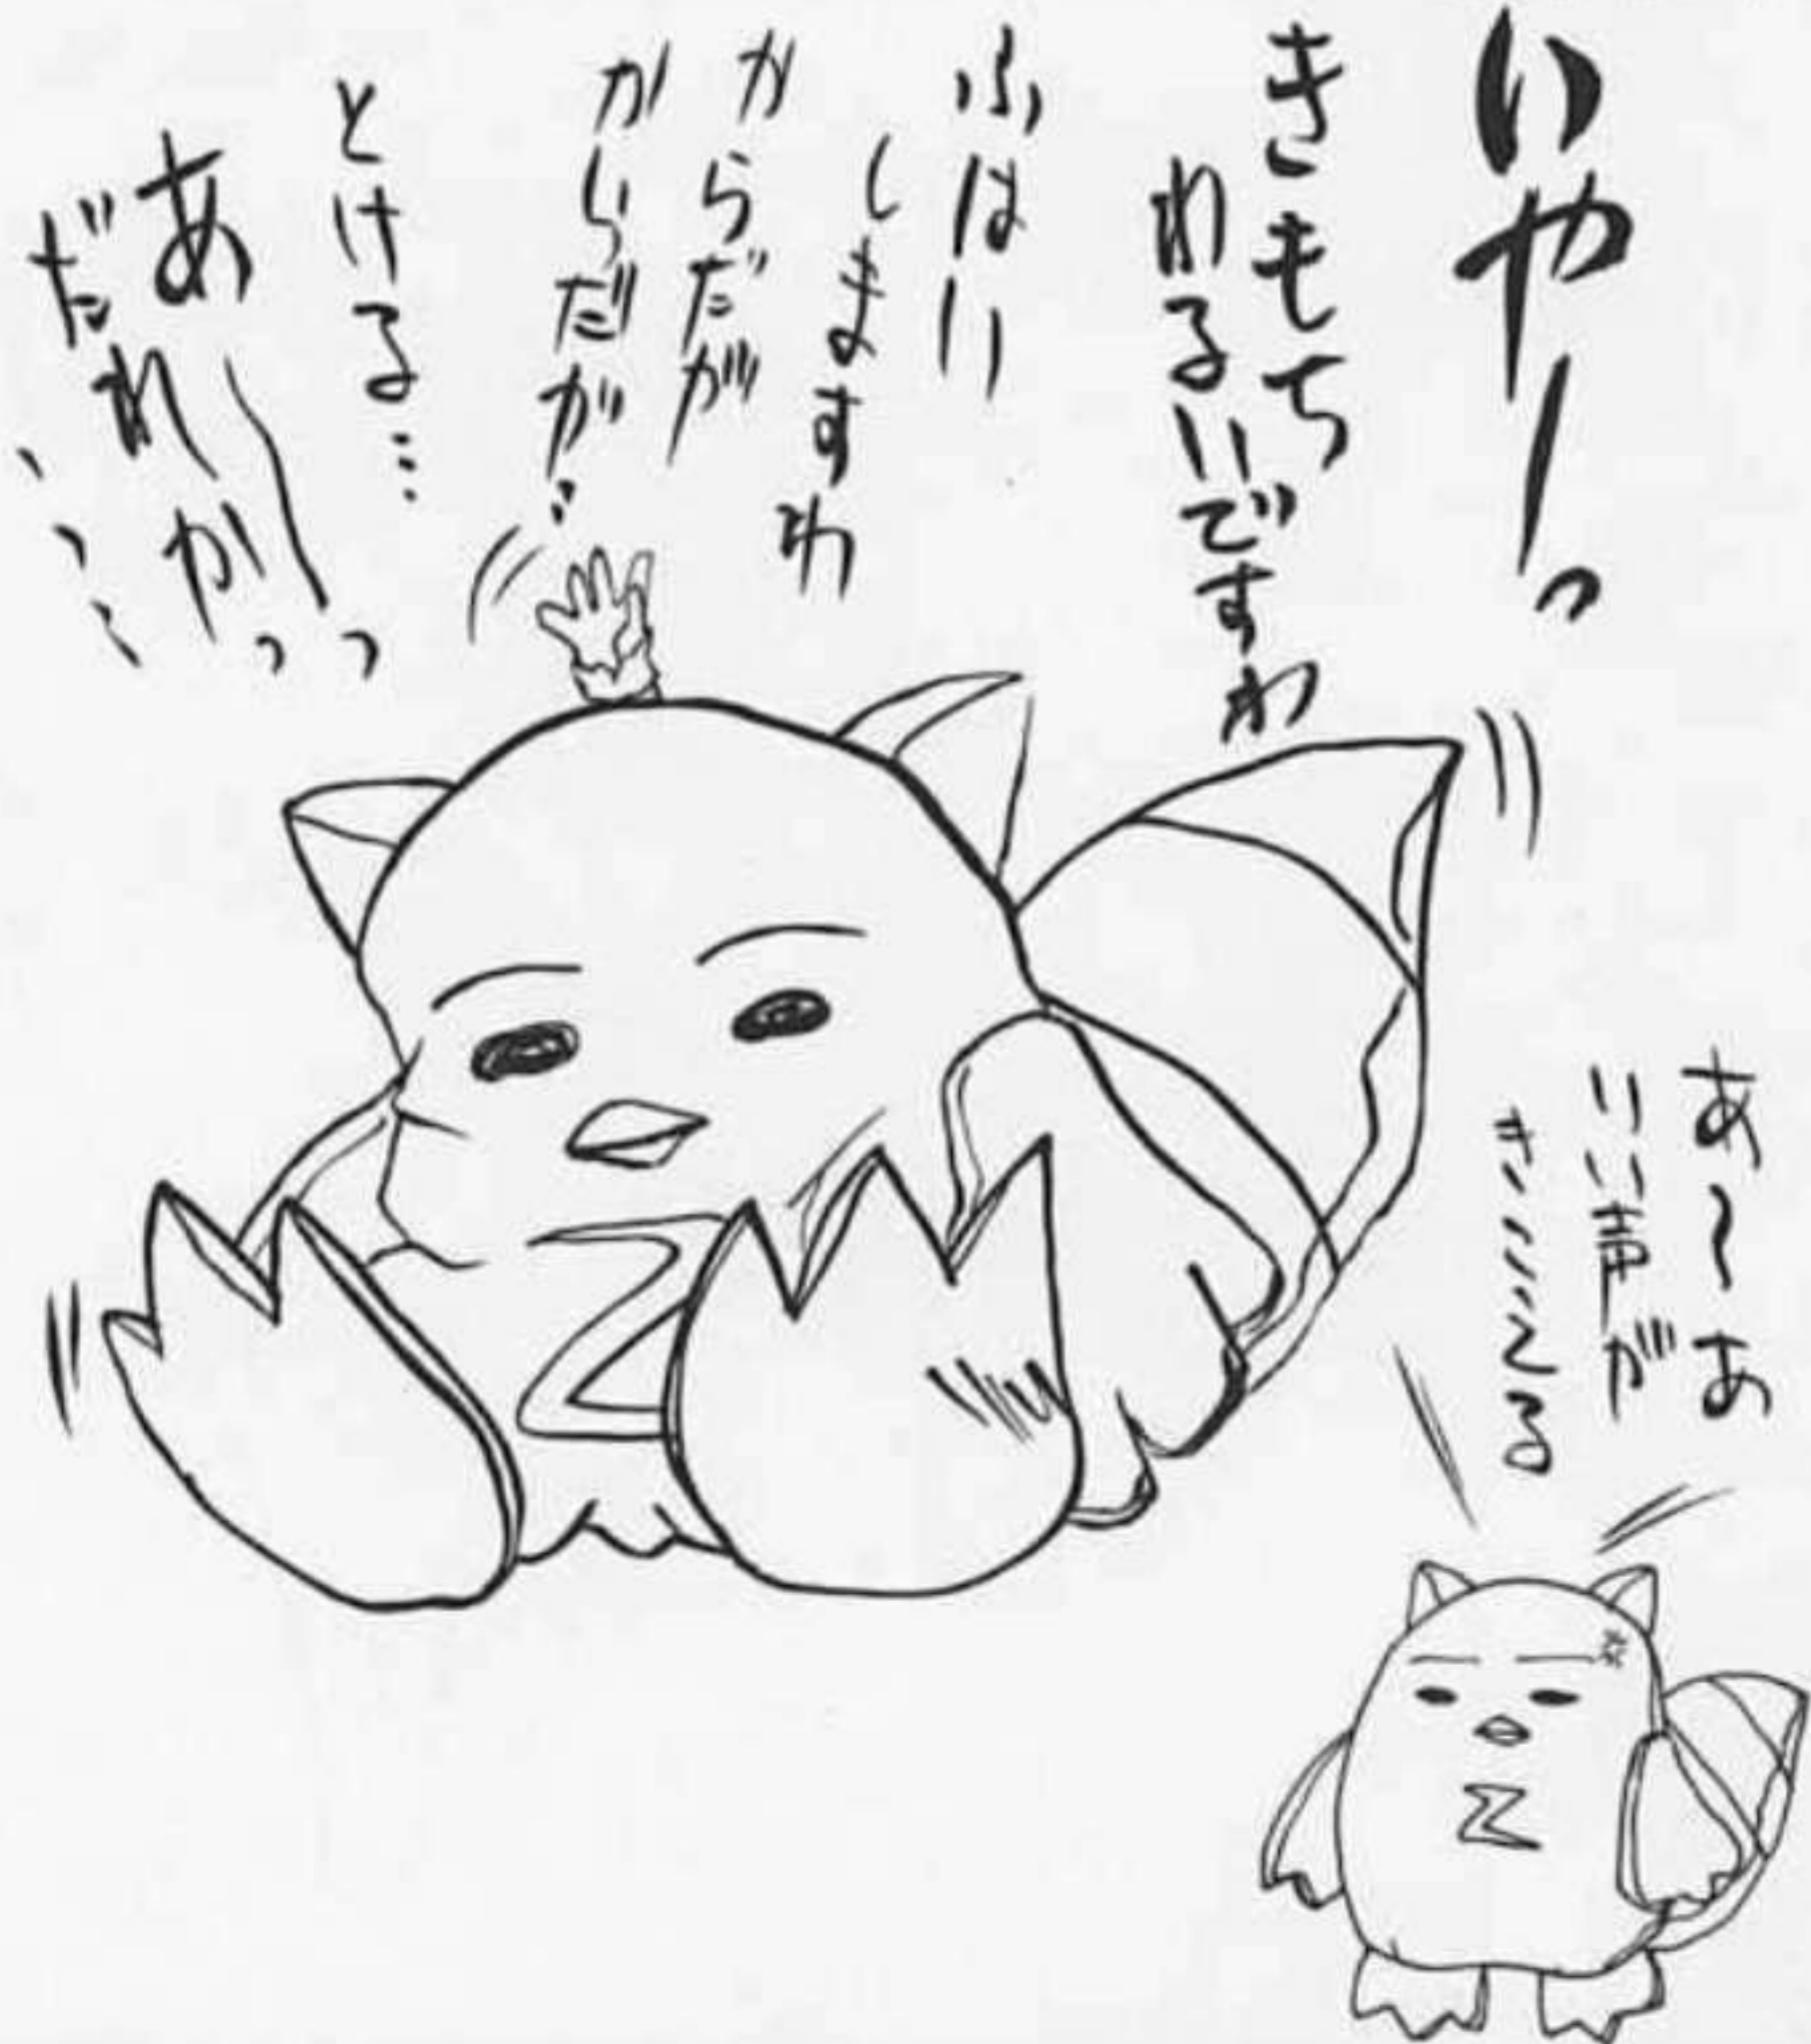 いやーっ
きもち
わるいですわ
ふはい
しますわ
からだが
からだが…
とける…
あ～っ
だれかっ
、、、
あ～あ
いい声が
きこえる
Z
Z